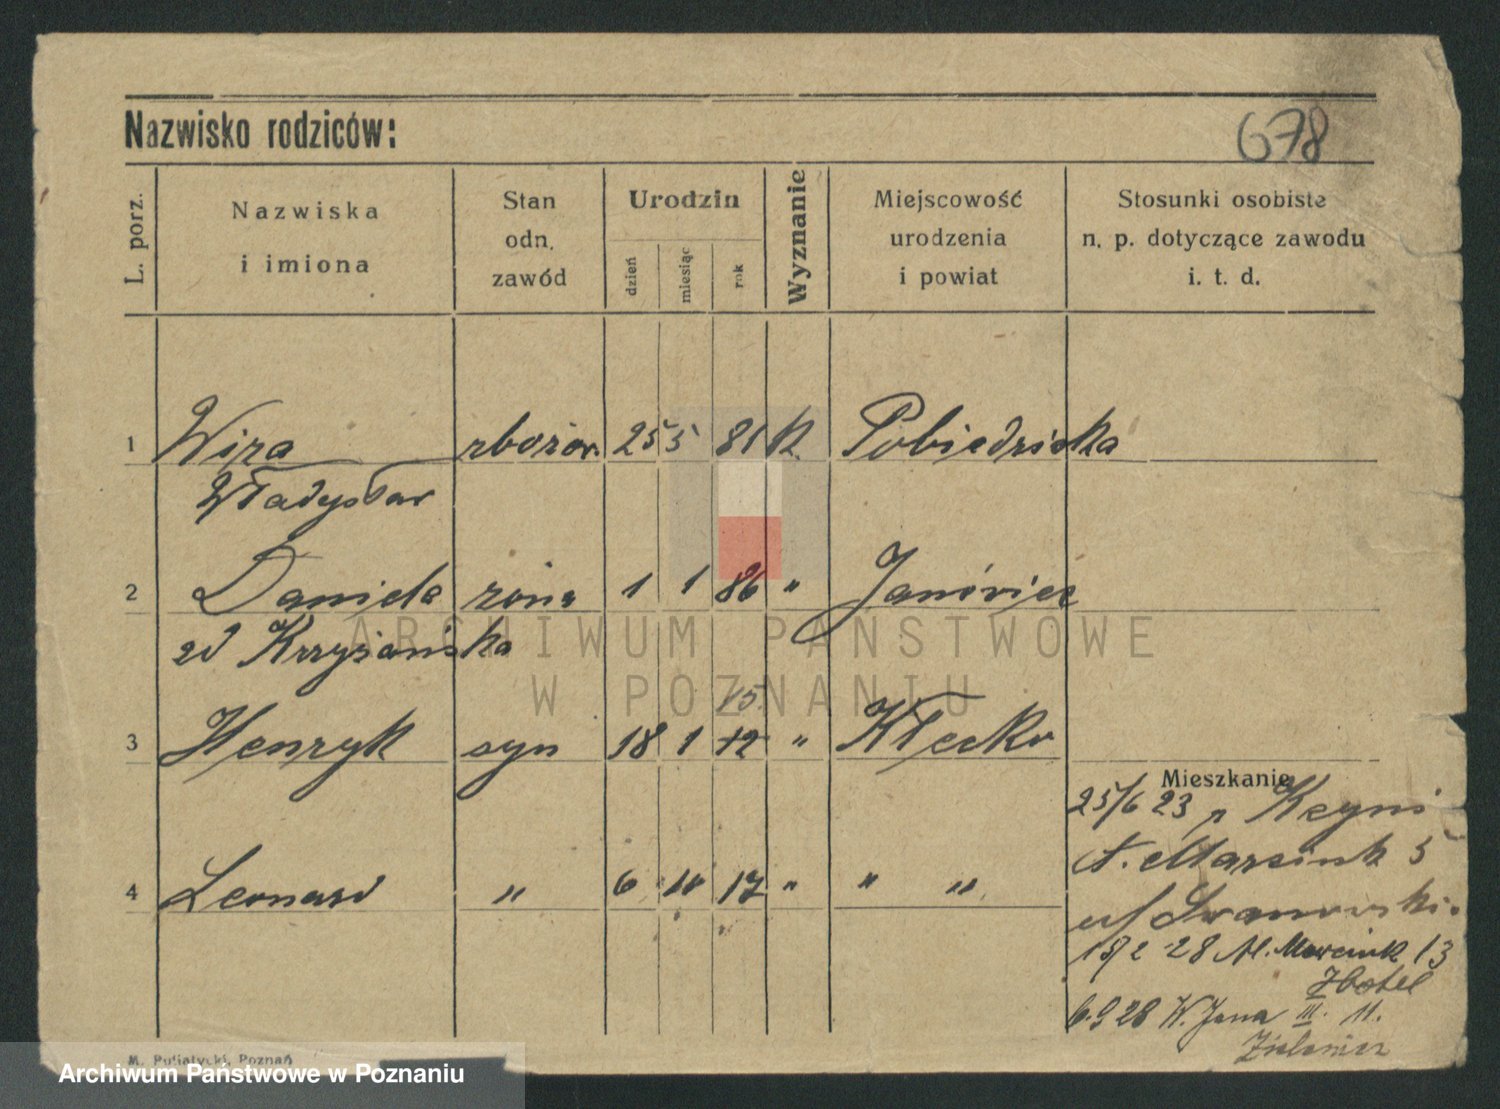 678
Nazwisko rodziców:
L. porz.
Nazwiska
i imiona
Stan
odn.
zawód
Urodzin
dzień
miesiąc
rok
Wyznanie
Miejscowość
urodzenia
i powiat
Stosunki osobiste
n. p. dotyczące zawodu
i. t. d.
1 Wiza zbożow. 25 5 81 K. Pobiedziska
Władysław
2 Daniela żona 1 1 86 " Janówiec
zd Krzyżańska
15.
3 Henryk syn 18 1 12 " Kłecko
Mieszkanie
25/6 23 Kcyni
A. Marcink 5
4 Leonard " 6 10 17 " " "
18/2 28 Al. Marcink 13
Hotel
6.9 28 W. Jana III. 11.
M. Putiatycki, Poznań
ARCHIWUM PAŃSTWOWE
W POZNANIU
Archiwum Państwowe w Poznaniu